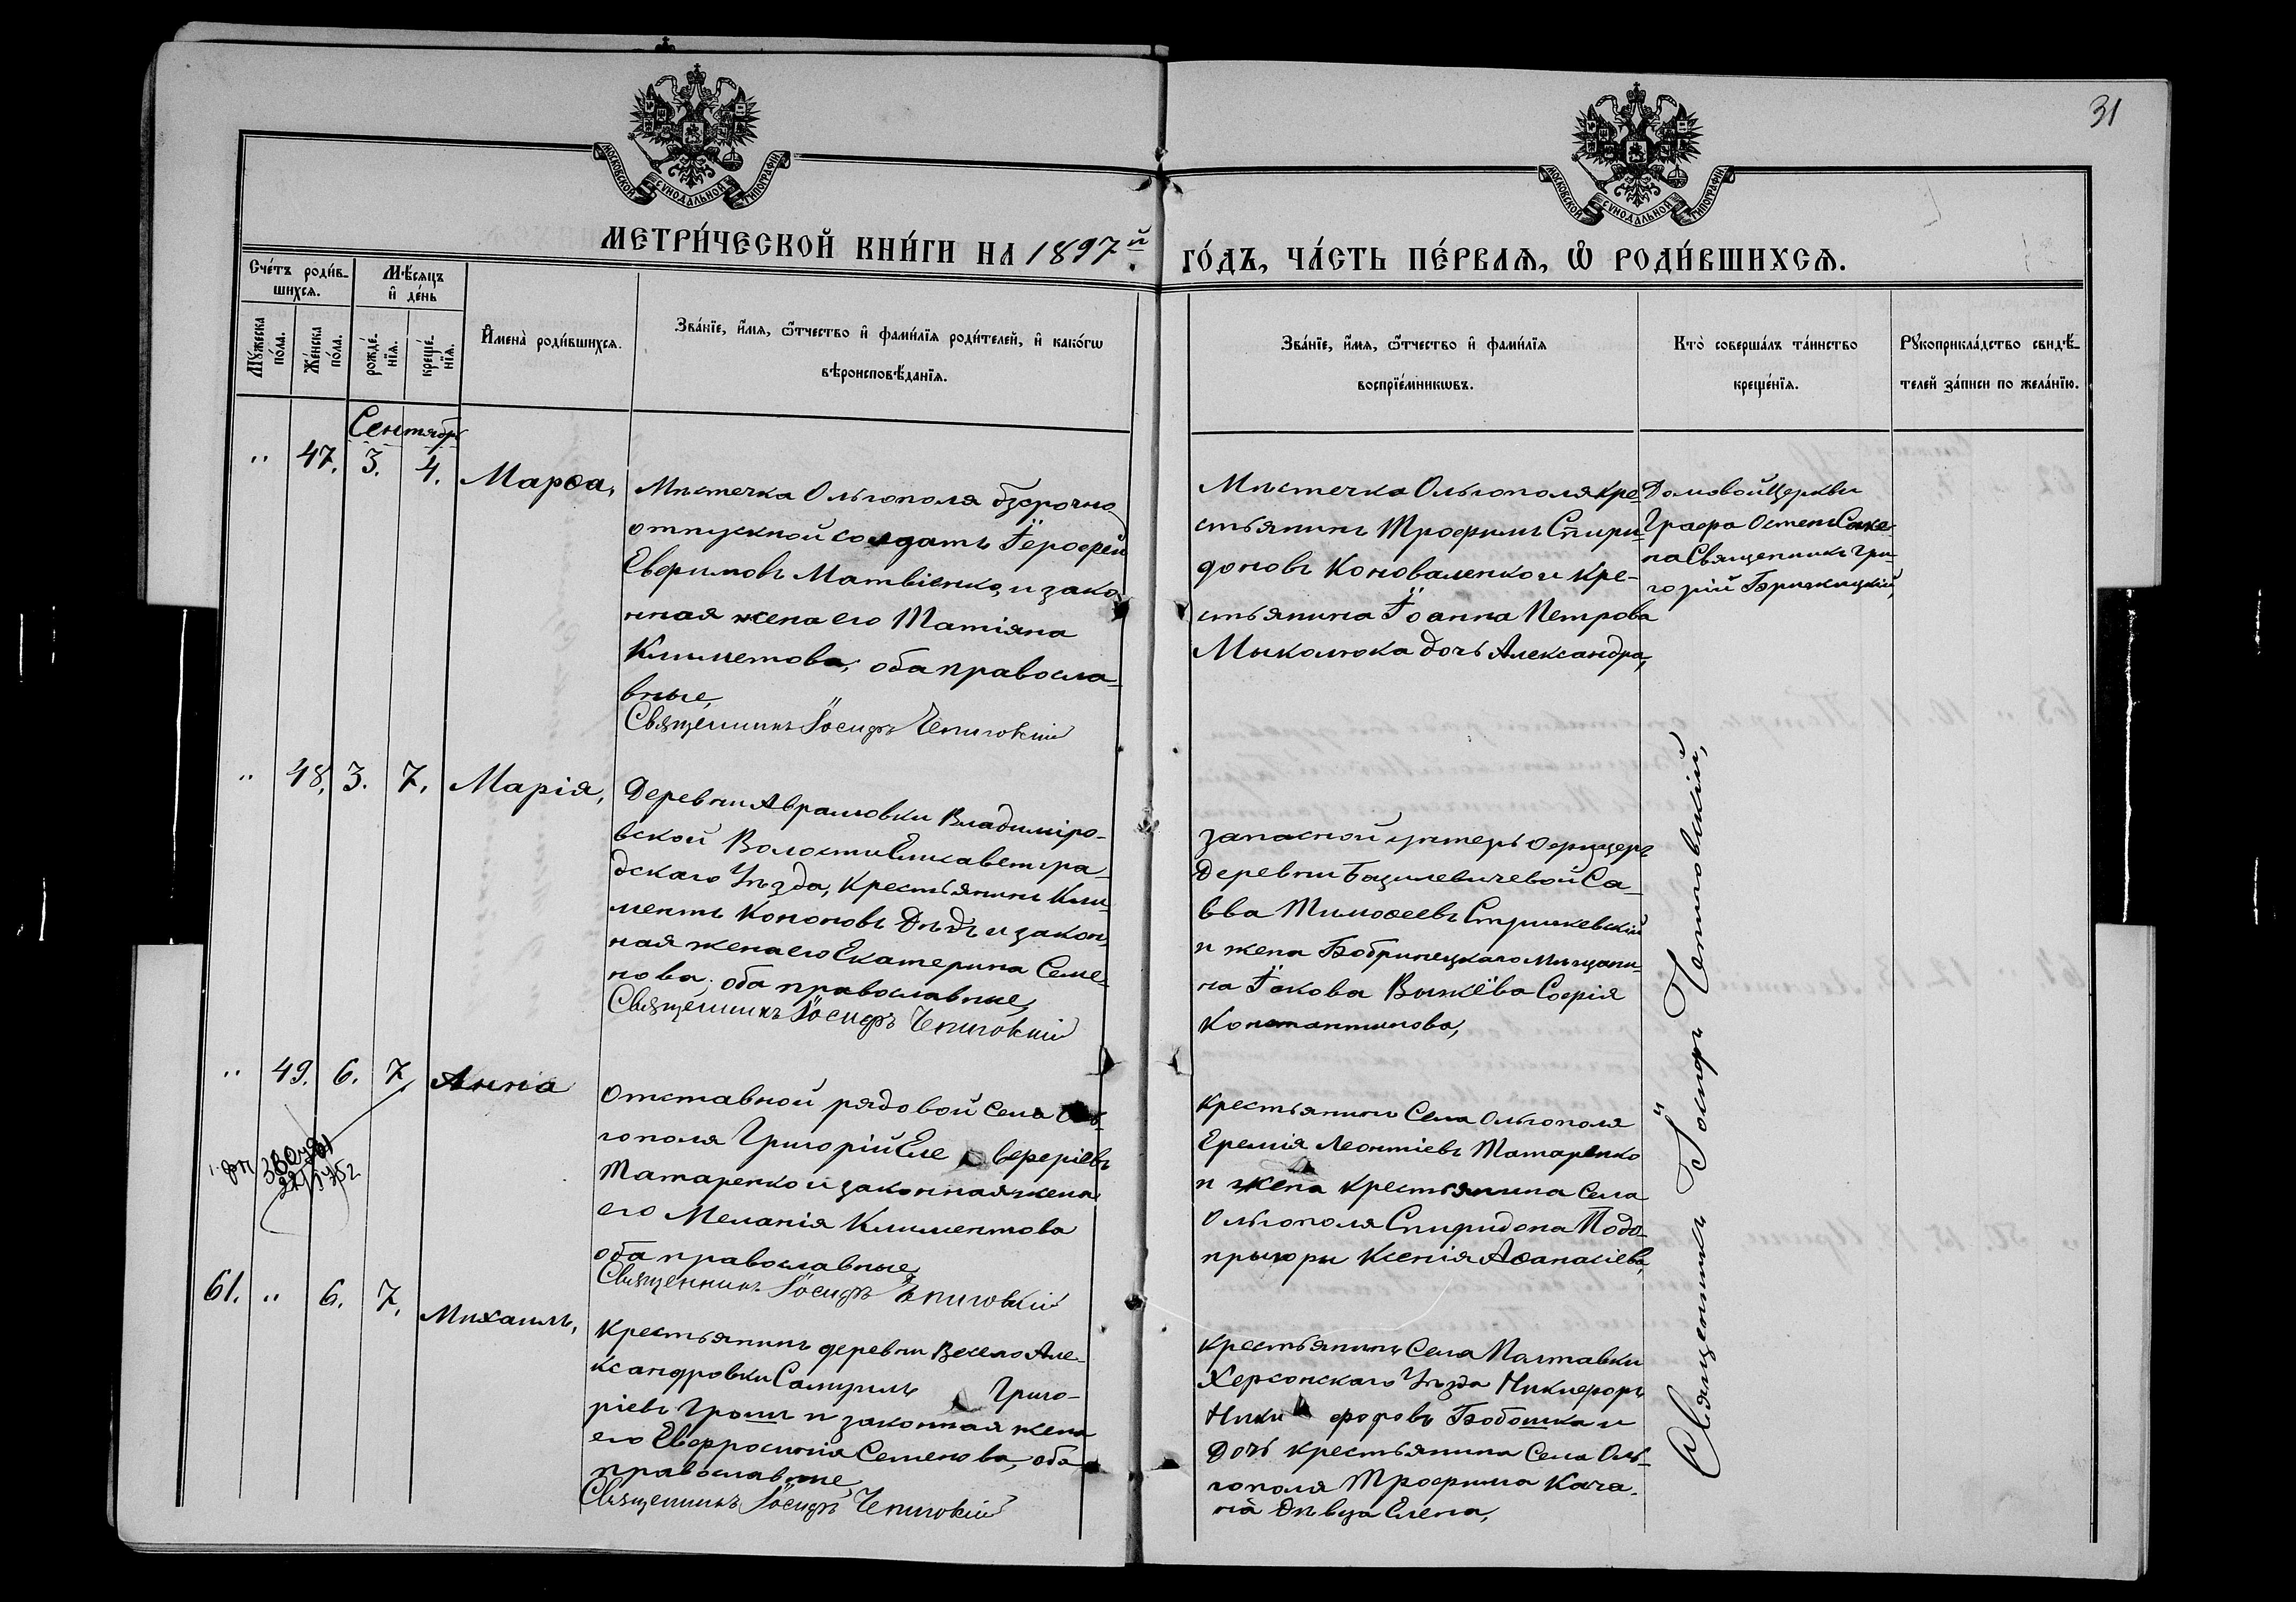 31
МОСКОВСКОЙ СѴНОДАЛЬНОЙ ТИПОГРАФІИ
МОСКОВСКОЙ СѴНОДАЛЬНОЙ ТИПОГРАФІИ
МЕТРИ́ЧЕСКОЙ КНИ́ГИ НА 1897й
ГО́ДЪ, ЧА́СТЬ ПЕ́РВАѦ, Ѡ РОДИ́ВШИХСѦ.
Сче́тъ роди́в-
шихсѧ.
Мѣ́сяцъ
и҆ де́нь
Мꙋ́жеска
по́ла.
Же́нска
по́ла.
рожде́-
нїѧ.
креще́-
нїѧ.
И҆мена̀ роди́вшихсѧ.
Зва́нїе, и҆́мѧ, ѻ҆́тчество и҆ фами́лїѧ роди́телей, и҆ како́гѡ
вѣроисповѣ́данїѧ.
Зва́нїе, и҆́мѧ, ѻ҆́тчество и҆ фами́лїѧ
воспрїе́мникѡвъ.
Кто̀ соверша́лъ та́инство
креще́нїѧ.
Рꙋкоприкла́дство свидѣ́-
телей за́писи по жела́нїю.
Сентябрь
" 47. 3. 4. Марѳа,
Мѣстечка Ольгополя безсрочно
отпускной солдатъ Іерофей
Евфимовъ Матвіенко, и зако
нная жена его Татіяна
Климетова, оба правосла-
вные,
Священникъ Іосифъ Чепиговскій
Мѣстечка Ольгополя кре-
стьянинъ Трофимъ Спири-
доновъ Коноваленко и кре-
стьянина Іоанна Петрова
Мыколюка дочь Александра,
Домовой Церкви
Графа Остенъ Саке-
на Священникъ Гри-
горій
" 48. 3. 7. Марія,
Деревни Аврамовки Владиміро-
вской Волости Елисаветгра-
дскаго Уѣзда, крестьянинъ Кли-
ментъ Кононовъ Дѣдъ и закон-
ная жена его Екатерина Семе-
нова. оба православные,
Священникъ Іосифъ Чепиговскій
запасной унтеръ офицеръ
деревни Базилевичевой Са-
вва Тимоѳеевъ Стрижевскій
и жена Бобринецкаго Мѣщани-
на Іакова Выжева Софія
Константинова,
" 49. 6. 7 Анна
Отставной рядовой села Оль-
гополя Григорій Еле вферіевъ
Татаренко и законная жена
его Меланія Климентова
оба православные,
Священникъ Іосифъ Чепиговскій
крестьянинъ Села Ольгополя
Еремія Леонтіевъ Татаренко
и жена крестьянина Села
Ольгополя Спиридона Подо-
прыгоры Ксенія Аѳанасіева,
61. " 6. 7. Михаилъ,
Крестьянинъ деревни Весело Але-
ксандровки Самуилъ Григо-
ріевъ Грошъ и законная жена
его Евфросинія Семенова, оба
православные,
Священникъ Іосифъ Чепиговскій
крестьянинъ Села Полтавки
Херсонскаго Уѣзда Никифоръ
Ники форовъ Бобошка и
дочь крестьянина Села Оль-
гополя Трофима Кача-
на Дѣвца Елена,
Священникъ Іосифъ Чепиговскій,